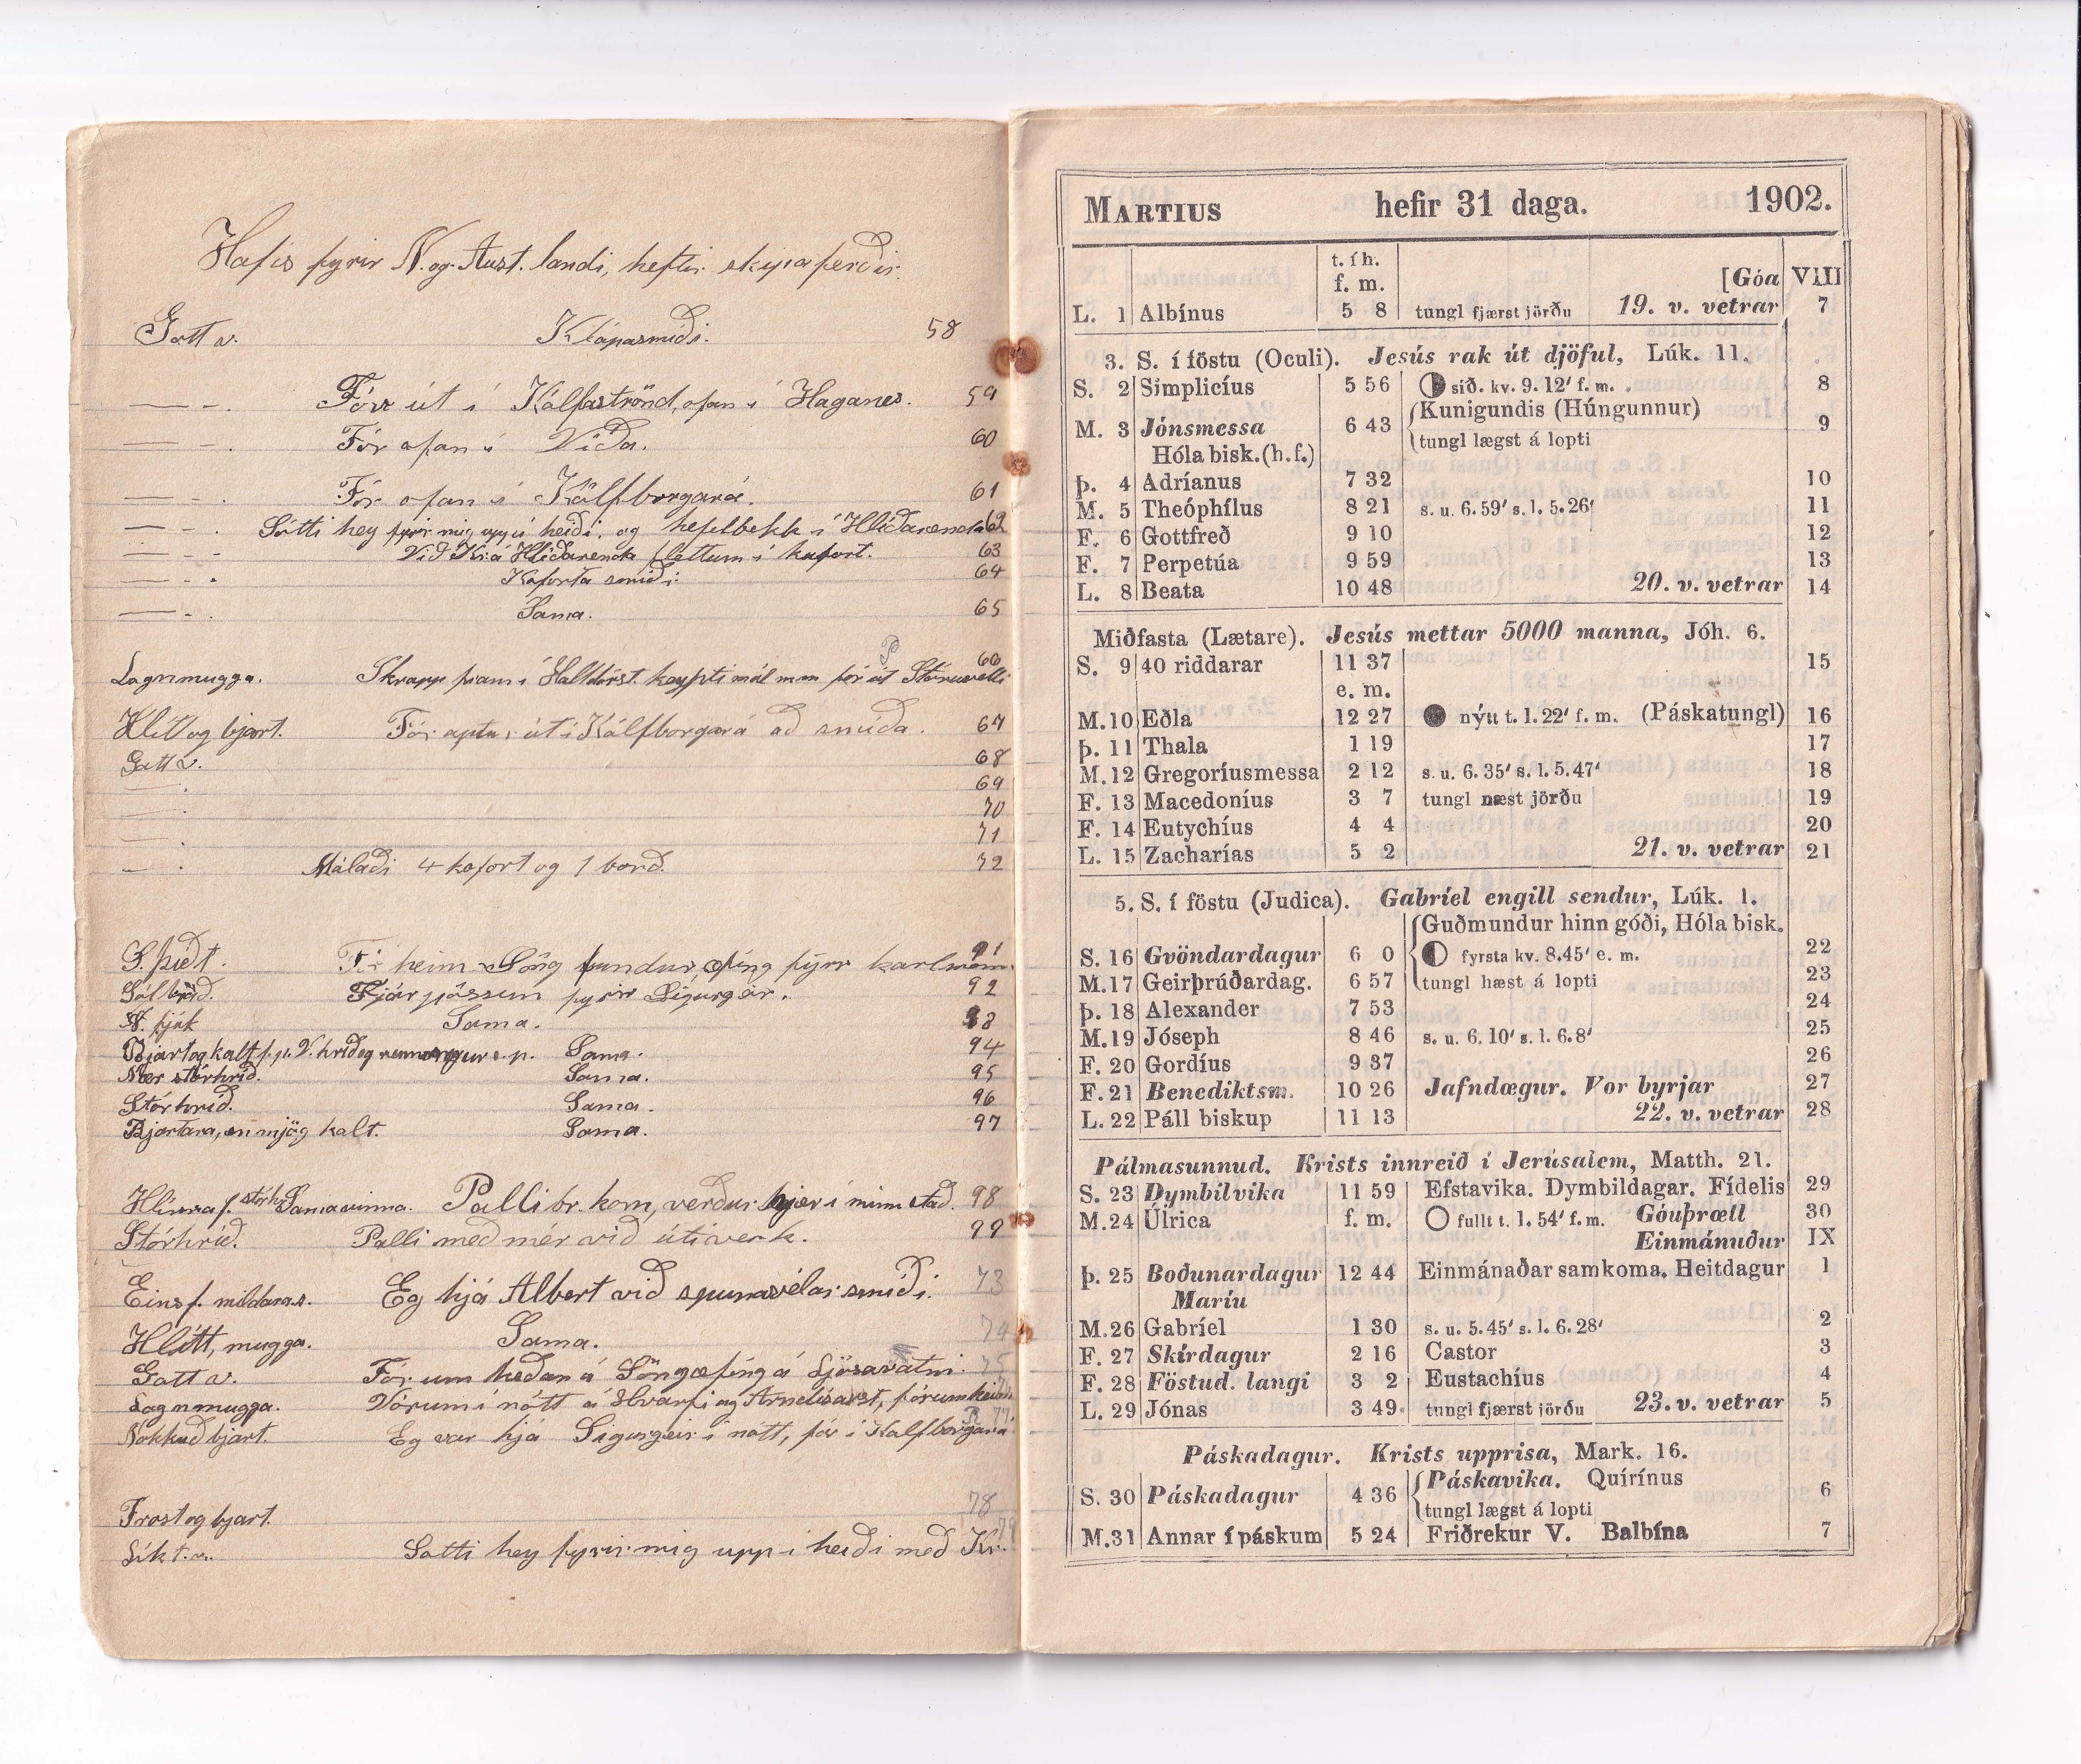 Hafís fyrir N. og Aust. landi, heftir skipaferðir.
Gott v. Klápasmíði. 58
— – . Fór út í Kálfaströnd, ofan í Haganes. 59
— – . Fór ofan í Víða. 60
— – . Fór ofan í Kálfborgará. 61
— – . Sótti hey fyrir mig upp í heiði, og hefilbekk í Hlíðarenda 62
— – . Við Kr. á Hlíðarenda flettum í kofort. 63
— – . Koforta smíði. 64
— – . Sama. 65
P
Lognmugga. Skrapp fram í Halldórst. keypti mál m.m. fór út Stóruvelli 66
Hlítt og bjart. Fór aptur út í Kálfborgará að smíða. 67
Gott v. 68
— . 69
— 70
— 71
— . Málaði 4 kofort og 1 borð. 72
S. þítt. Fór heim. Söng fundur, æfing fyrir karlmenn. 91
Fjárpössun fyrir Sigurgeir. 92
N. fjúk Sama. 93
Bjart og kalt f.p. V. hríð og renningur e.p. Sama. 94
Nær stórhríð. Sama. 95
Stórhríð. Sama. 96
Bjartara, en mjög kalt. Sama. 97
Hlíuna f. stórh. Sama vinna. Palli br. kom, verður hjer í minn stað. 98
Stórhríð. Palli með mér við útiverk. 99
Eins f. mildara s. Eg hjá Albert við spunavélar smíði. 73
Hlítt, mugga. Sama. 74
Gott v. Fór um heðan á Söngæfíng á Ljósavatni. 75
Logn mugga. Vórum í nótt á Hvarfi og Arndísarst, fórum heim
Nokkuð bjart. Eg var hjá Sigurgeir í nótt, fór í Kálfborgará 77
Frost og bjart. 78
Líkt v. Sótti hey fyrir mig upp í heiði með Kr. 79
MARTIUS hefir 31 daga. 1902.
t. í h.
f. m. [Góa VIII
L. 1 Albínus 5 8 tungl fjærst jörðu 19. v. vetrar 7
3. S. í föstu (Oculi). Jesús rak út djöful, Lúk. 11.
S. 2 Simplicíus 5 56 síð. kv. 9. 12′ f. m. 8
M. 3 Jónsmessa 6 43 Kunigundis (Húngunnur) 9
Hóla bisk. (h. f.) tungl lægst á lopti
Þ. 4 Adríanus 7 32 10
M. 5 Theóphílus 8 21 s. u. 6. 59′ s. l. 5. 26′ 11
F. 6 Gottfreð 9 10 12
F. 7 Perpetúa 9 59 13
L. 8 Beata 10 48 20. v. vetrar 14
Miðfasta (Lætare). Jesús mettar 5000 manna, Jóh. 6.
S. 9 40 riddarar 11 37 15
e. m.
M. 10 Eðla 12 27 nýtt t. 1. 22′ f. m. (Páskatungl) 16
Þ. 11 Thala 1 19 17
M. 12 Gregoríusmessa 2 12 s. u. 6. 35′ s. l. 5. 47′ 18
F. 13 Macedoníus 3 7 tungl næst jörðu 19
F. 14 Eutychíus 4 4 20
L. 15 Zacharías 5 2 21. v. vetrar 21
5. S. í föstu (Judica). Gabríel engill sendur, Lúk. 1.
Guðmundur hinn góði, Hóla bisk.
S. 16 Gvöndardagur 6 0 fyrsta kv. 8.45′ e. m. 22
M. 17 Geirþrúðardag. 6 57 tungl hæst á lopti 23
Þ. 18 Alexander 7 53 24
M. 19 Jóseph 8 46 s. u. 6. 10′ s. l. 6. 8′ 25
F. 20 Gordíus 9 37 26
F. 21 Benediktsm. 10 26 Jafndægur. Vor byrjar 27
L. 22 Páll biskup 11 13 22. v. vetrar 28
Pálmasunnud. Krists innreið í Jerúsalem, Matth. 21.
S. 23 Dymbilvika 11 59 Efstavika. Dymbildagar. Fídelis 29
M. 24 Úlrica f. m. fullt t. 1. 54′ f. m. Góuþræll 30
Einmánuður IX
Þ. 25 Boðunardagur 12 44 Einmánaðarsamkoma. Heitdagur 1
Maríu
M. 26 Gabríel 1 30 s. u. 5. 45′ s. l. 6. 28′ 2
F. 27 Skírdagur 2 16 Castor 3
F. 28 Föstud. langi 3 2 Eustachíus 4
L. 29 Jónas 3 49 tungl fjærst jörðu 23. v. vetrar 5
Páskadagur. Krists upprisa, Mark. 16.
S. 30 Páskadagur 4 36 Páskavika. Quírínus 6
tungl lægst á lopti
M. 31 Annar í páskum 5 24 Friðrekur V. Balbína 7